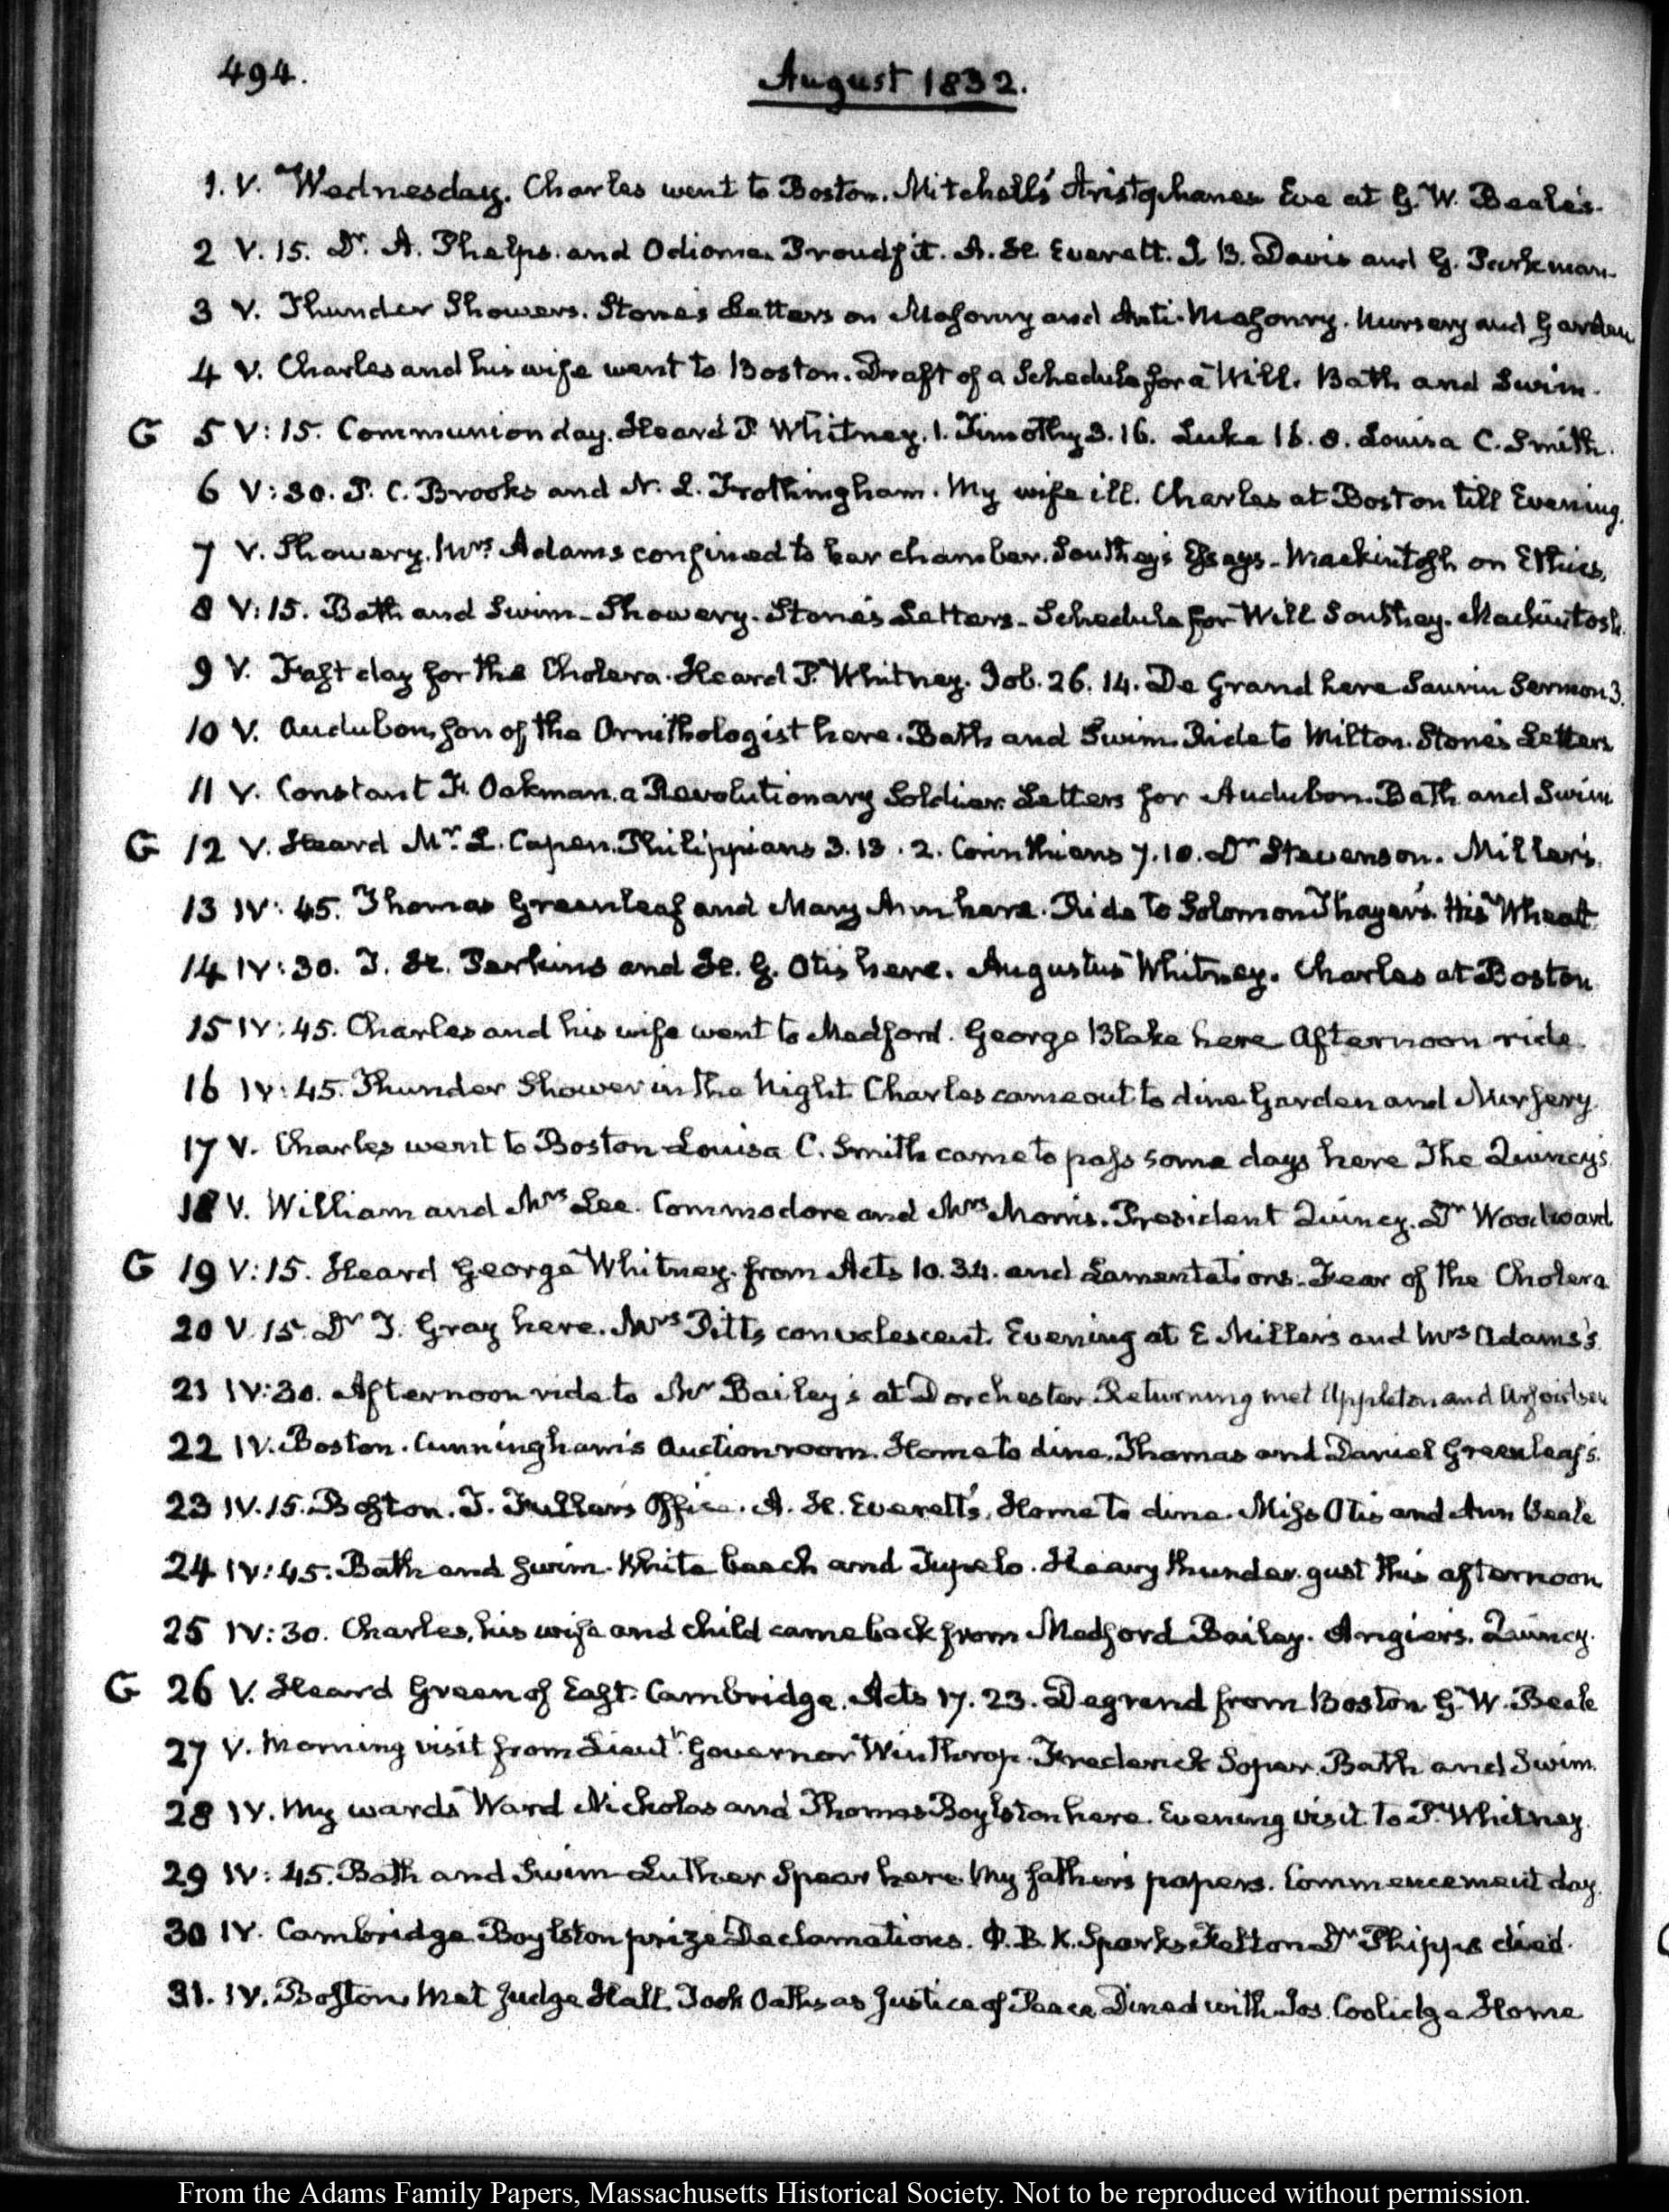 494.
August 1832.
1. V. Wednesday. Charles went to Boston. Mitchell's Aristophanes Eve at G. W. Beale's.
2 V. 15. Dr. A. Phelps. and Odiorne. Proudfit. A. H. Everett. I. B. Davis and G. Parkman.
3 V. Thunder Showers. Stone's Letters on Masonry and Anti-Masonry. Nursery and Garden
4 V. Charles and his wife went to Boston. Draft of a Schedule for a Will. Bath and Swim.
G 5 V: 15. Communion day. Heard P. Whitney. 1. Timothy 3. 16. Luke 16. 8. Louisa C. Smith.
6 V: 30. P. C. Brooks and N. L. Frothingham. My wife ill. Charles at Boston till Evening.
7 V. Showery. Mrs Adams confined to her chamber. Southey's Essays - Mackintosh on Ethics.
8 V: 15. Bath and Swim - Showery. Stone's Letters - Schedule for Will Southey. Mackintosh.
9 V. Fast day for the Cholera. Heard P. Whitney. Job. 26. 14. De Grand here Saurin Sermon 3.
10 V. Audubon, son of the Ornithologist here. Bath and Swim. Ride to Milton. Stone's Letters
11 V. Constant F. Oakman. a Revolutionary Soldier. Letters for Audubon. Bath and Swim
G 12 V. Heard Mr. L. Capen. Philippians 3. 13. 2. Corinthians 7. 10. Dr Stevenson. Miller's.
13 IV: 45. Thomas Greenleaf and Mary Ann here. Ride to Solomon Thayer's. His Wheat
14 IV: 30. T. H. Perkins and H. G. Otis here. Augustus Whitney. Charles at Boston
15 IV: 45. Charles and his wife went to Medford. George Blake here Afternoon ride.
16 IV: 45. Thunder Shower in the Night. Charles came out to dine. Garden and Nursery.
17 V. Charles went to Boston - Louisa C. Smith came to pass some days here The Quincy's.
18 V. William and Mrs Lee. Commodore and Mrs Morris. President Quincy. Dr Woodward
G 19 V: 15. Heard George Whitney. from Acts 10. 34. and Lamentations. Fear of the Cholera
20 V. 15. Dr T. Gray here. Mrs Pitts convalescent. Evening at E Miller's and Mrs Adams's.
21 IV: 30. Afternoon ride to Mr Bailey's at Dorchester. Returning met Appleton and
22 IV. Boston. Cunningham's Auction room. Home to dine. Thomas and Daniel Greenleaf's.
23 IV. 15. Boston. T. Fuller's Office. A. H. Everett's. Home to dine. Miss Otis and Ann Beale
24 IV: 45. Bath and Swim. White beech and Tupelo. Heavy thunder. gust this afternoon
25 IV: 30. Charles, his wife and child came back from Medford Bailey. Angiers. Quincy.
G 26 V. Heard Green of East. Cambridge. Acts 17. 23. Degrand from Boston G. W. Beale
27 V. Morning visit from Lieut. Governor Winthrop. Frederick Soper. Bath and Swim.
28 IV. My wards Ward Nicholas and Thomas Boylston here. Evening visit to P. Whitney.
29 IV: 45. Bath and Swim - Luther Spear here. My father's papers. Commencement day.
30 IV. Cambridge. Boylston prize Declamations. Φ. B. K. Sparks. Felton. Dr Phipps died.
31. IV. Boston. Met Judge Hall. Took Oaths as Justice of Peace. Dined with Jos. Coolidge Home
From the Adams Family Papers, Massachusetts Historical Society. Not to be reproduced without permission.